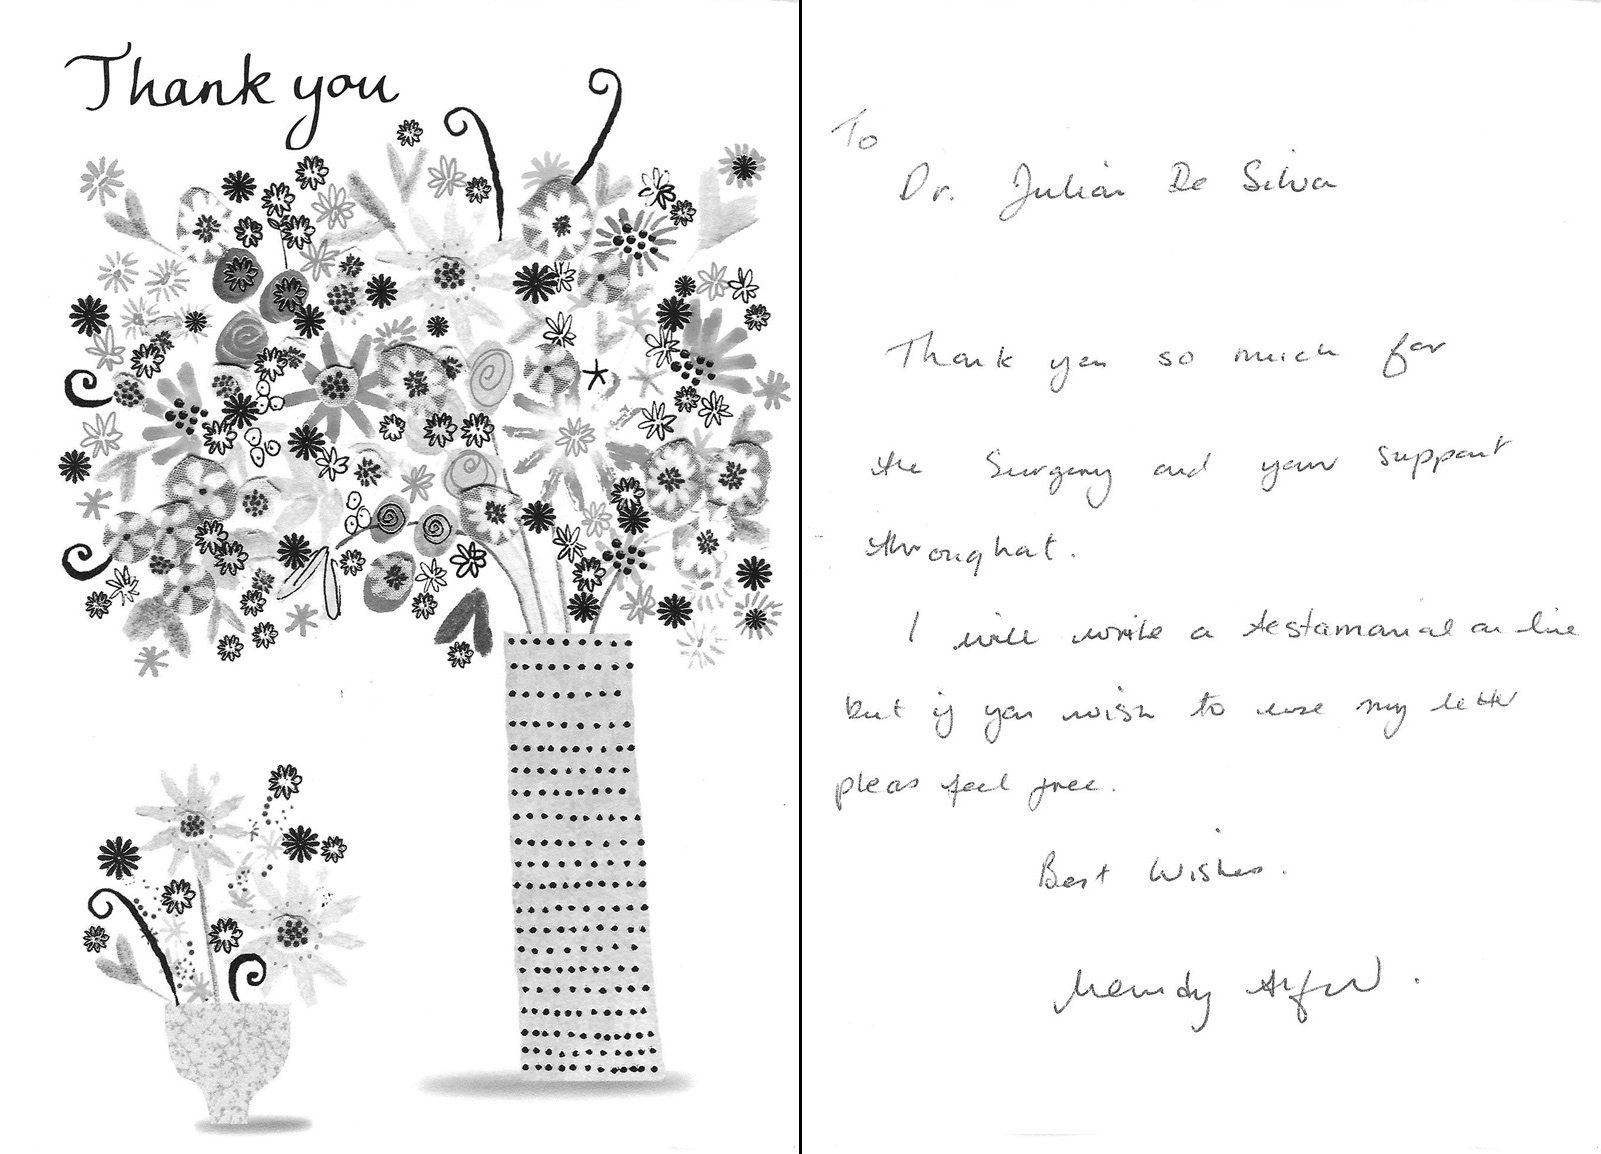 Thank you
To
Dr. Julian De Silva
Thank you so much for
the Surgery and your support
throughout.
I will write a testamonial on line
but if you wish to use my letter
pleas feel free.
Best Wishes.
Mandy